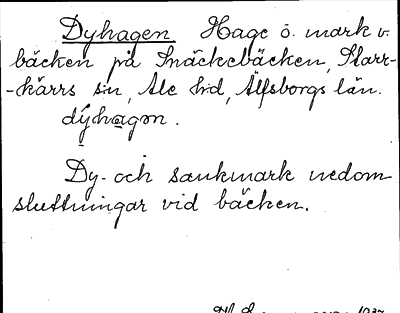 Dyhagen Hage ö. mark v.
bäcken på Snäckebäcken, Starr-
-kärrs sn, Ale hd, Älfsborgs län.
dýhagən.
Dy- och sankmark nedom
sluttningar vid bäcken.